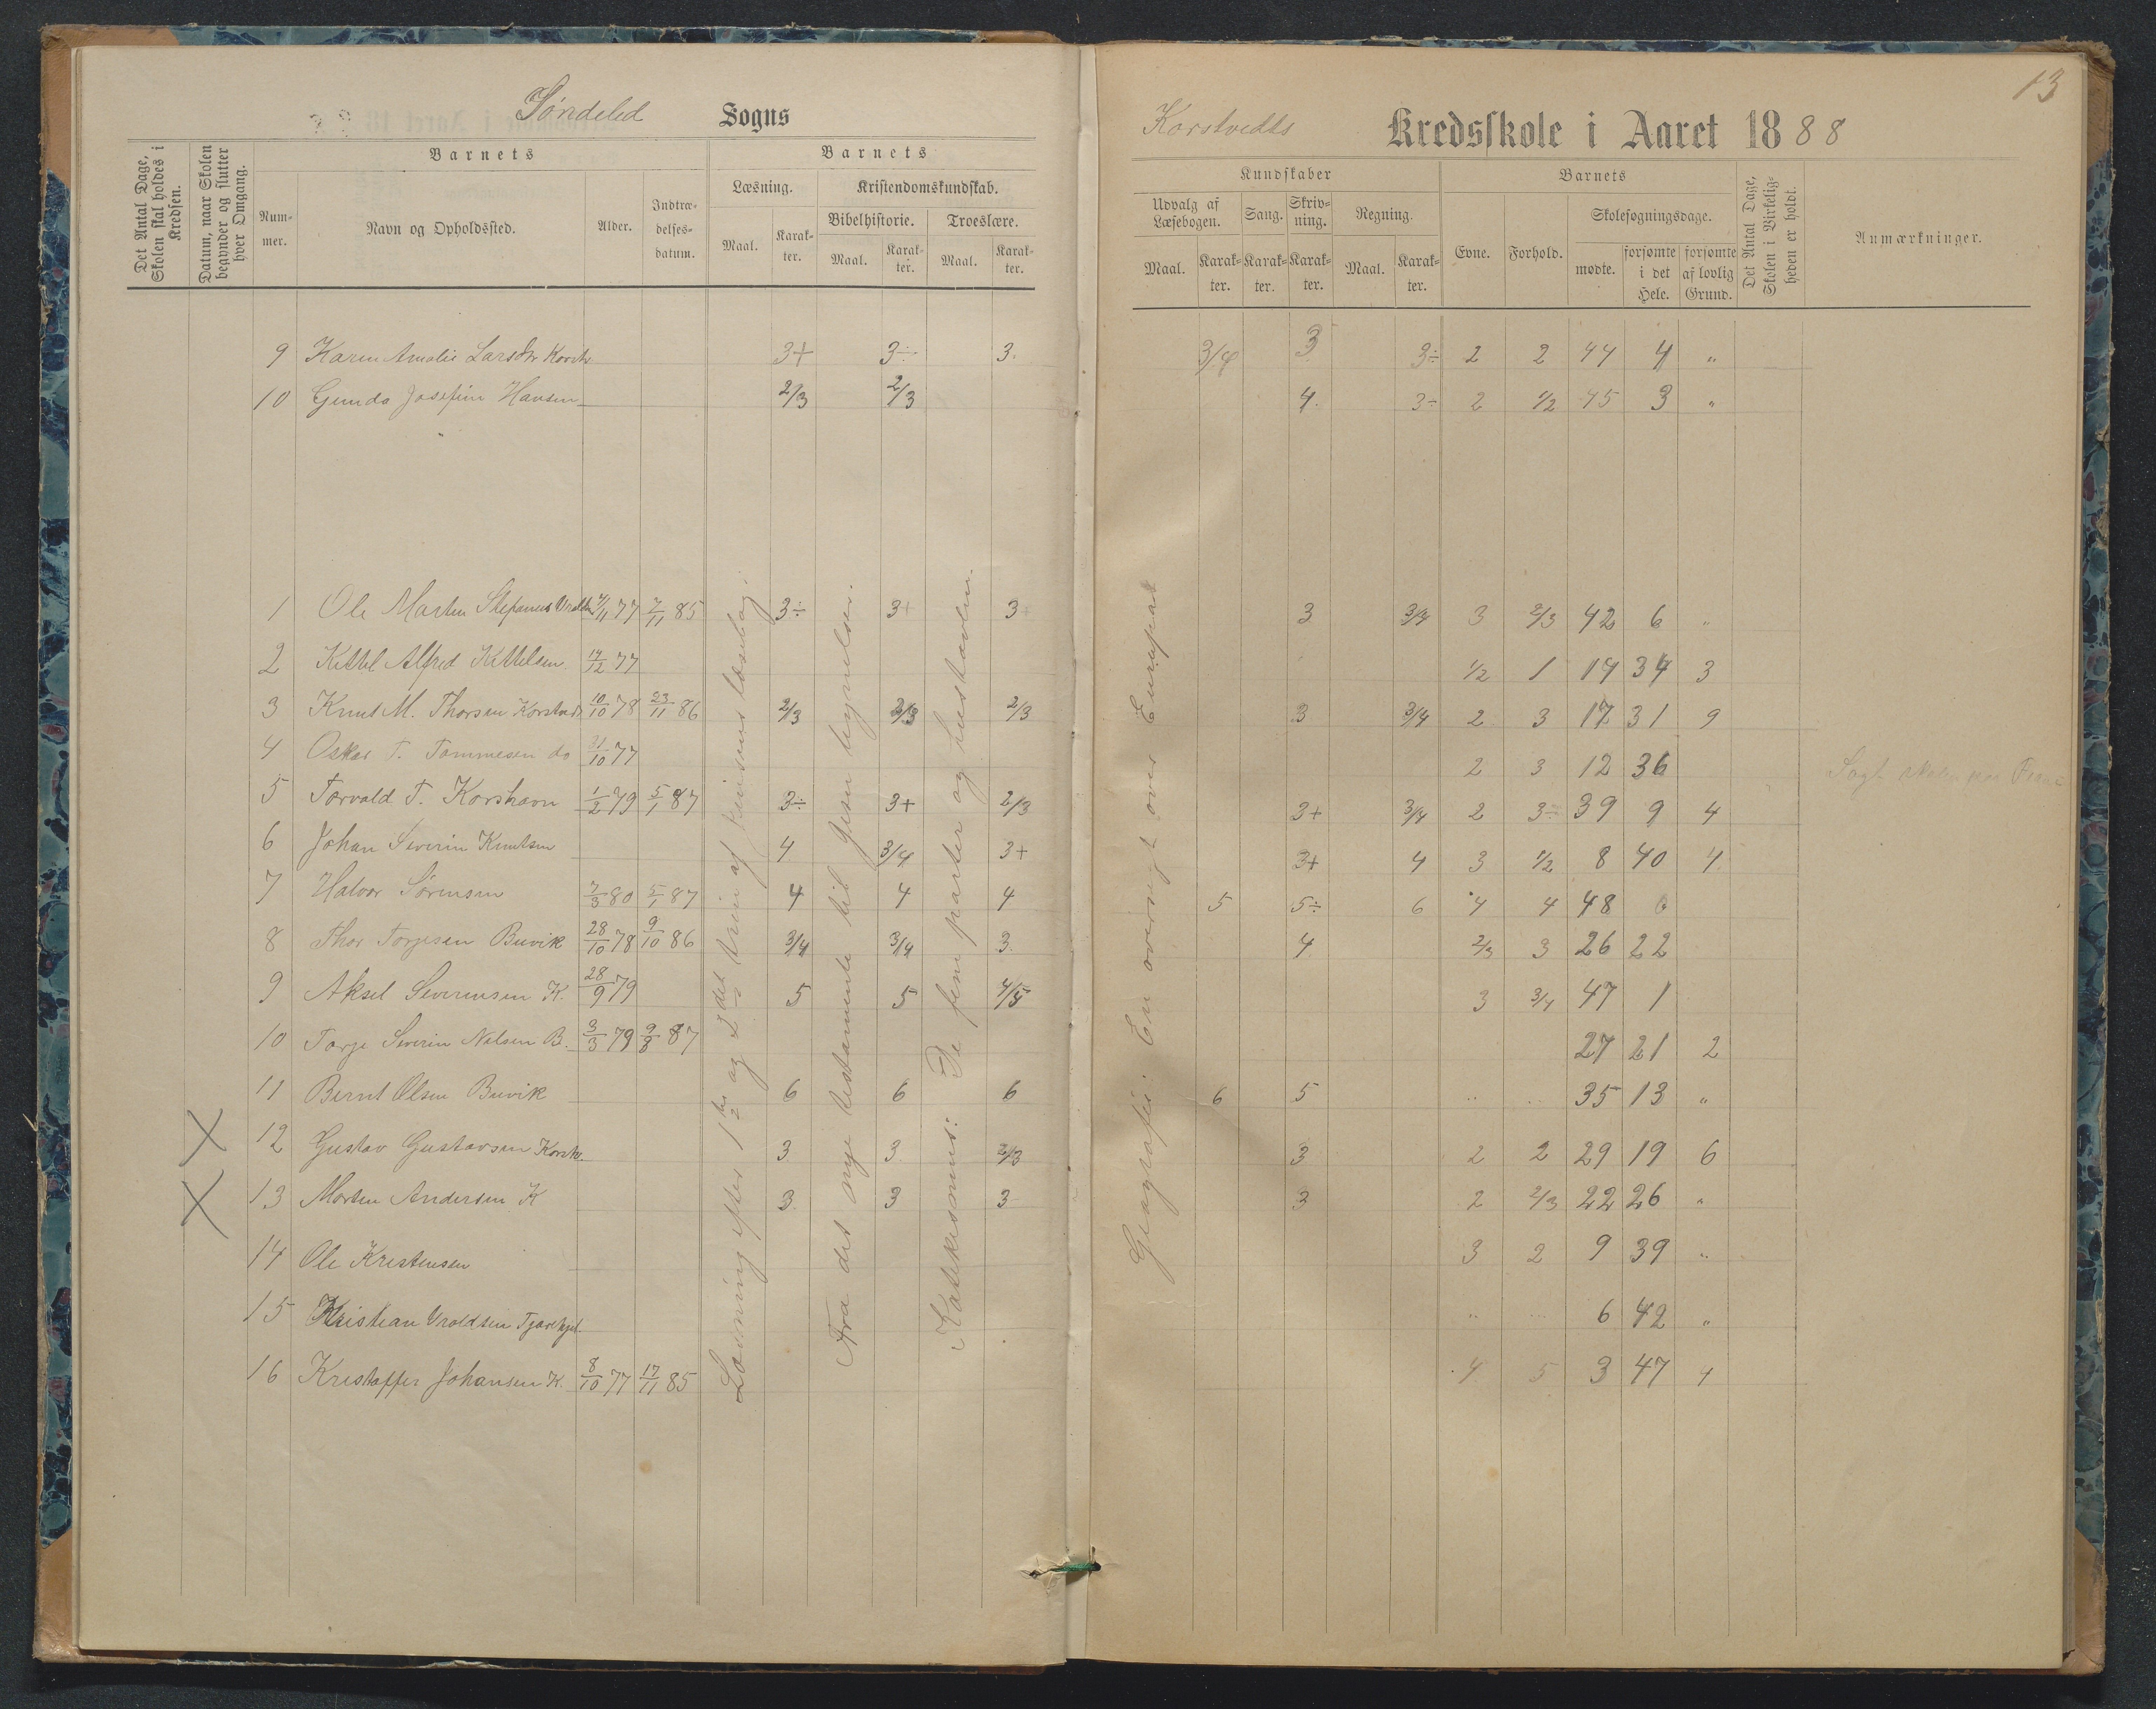 13
Søndeled Sogns
Korstvedts Kredsskole i Aaret 1888
Det Antal Dage, Skolen skal holdes i Kredsen.
Datum, naar Skolen begynder og slutter hver Omgang.
Barnets
Nummer.
Navn og Opholdssted.
Alder.
Indtrædelsesdatum.
Barnets
Læsning.
Maal.
Karakter.
Kristendomskundskab.
Bibelhistorie.
Maal.
Karakter.
Troeslære.
Maal.
Karakter.
Kundskaber
Udvalg af Læsebogen.
Maal.
Karakter.
Sang.
Karakter.
Skrivning.
Karakter.
Regning.
Maal.
Karakter.
Barnets
Evne.
Forhold.
Skolesøgningsdage.
mødte.
forsømte i det Hele.
forsømte af lovlig Grund.
Det Antal Dage, Skolen i Virkeligheden er holdt.
Anmærkninger.
9 Karen Amalie Larsdtr Korstv 3+ 3÷ 3. 3/4 3 3÷ 2 2 44 4 "
10 Gunda Josefine Hansen 2/3 2/3 4. 3÷ 2 1/2 45 3 "
1 Ole Marten Stefanus 77 7/11 85 3÷ 3+ 3+ 3 3/4 3 2/3 42 6 "
2 Kittel Alfred Kittelsen 14/12 77 1/2 1 14 34 3
3 Knut M. Thorsen Korstvedt 10/10 78 23/11 86 2/3 2/3 2/3 3 3/4 2 3 17 31 9
4 Oskar T. Tommesen do 31/10 77 2 3 12 36
5 Torvald T. Korshavn 1/2 79 5/1 87 3÷ 3+ 2/3 3+ 3/4 2 3÷ 39 9 4
6 Johan Severin Knutsen 4 3/4 3+ 3+ 4 3 1/2 8 40 4
7 Halvor Sørensen 7/3 80 5/1 87 4 4 4 5 5÷ 6 4 4 48 0
8 Thor Torjesen Buvik 28/10 78 9/10 86 3/4 3/4 3. 4 2/3 3 26 22
9 Aksel Severinsen K. 28/9 79 5 5 4/5 3 3/4 47 1
10 Torje Severin Nilsen B. 3/3 79 9/8 87 27 21 2
11 Bernt Olsen Buvik 6 6 6 6 5 " " 35 13 "
12 Gustav Gustavsen Korstv. 3 3 2/3 3 2 2 29 19 6
13 Morten Andersen K 3 3 3 3 2 2/3 22 26 "
14 Ole Kristensen 3 2 9 39 "
15 Kristian Vroldsen " " 6 42 "
16 Kristoffer Johansen K. 8/10 77 17/11 85 4 5 3 47 4
Læsning efter 1ste og 2det trin af Jensens læsebog.
Fra det nye testamente til Jesu begyndelse.
Katekismus: De fem parter og hustavlen.
Geografi: En oversigt over Europas